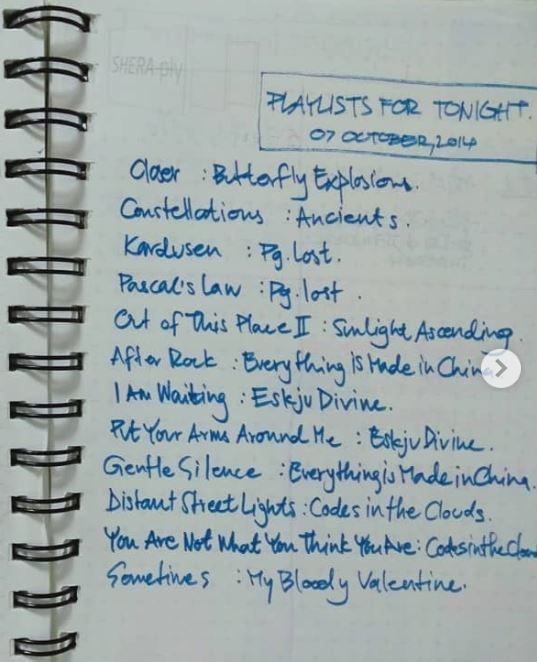 SHERA ply
PLAYLISTS FOR TONIGHT.
07 OCTOBER, 2014
Closer : Butterfly Explosions.
Constellations : Ancients.
Kardusen : Pg.lost.
Pascal's Law : Pg.lost.
Out of This Place II : Sunlight Ascending.
After Rock : Everything is Made in China
I Am Waiting : Eskju Divine.
Put Your Arms Around Me : Eskju Divine.
Gentle Silence : Everything is Made in China.
Distant Street Lights : Codes in the Clouds.
You Are Not What You Think You Are : Codes in the Clou
Sometimes : My Bloody Valentine.